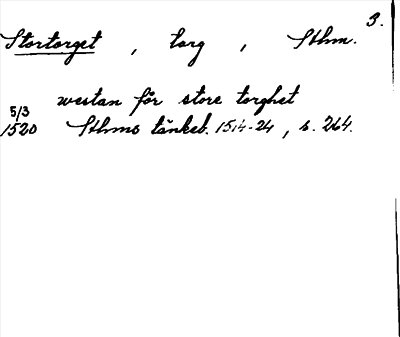 3.
Stortorget , torg , Sthm.
westan för store torghet
5/3
1520 Sthms tänkeb. 1514-24, s. 264.